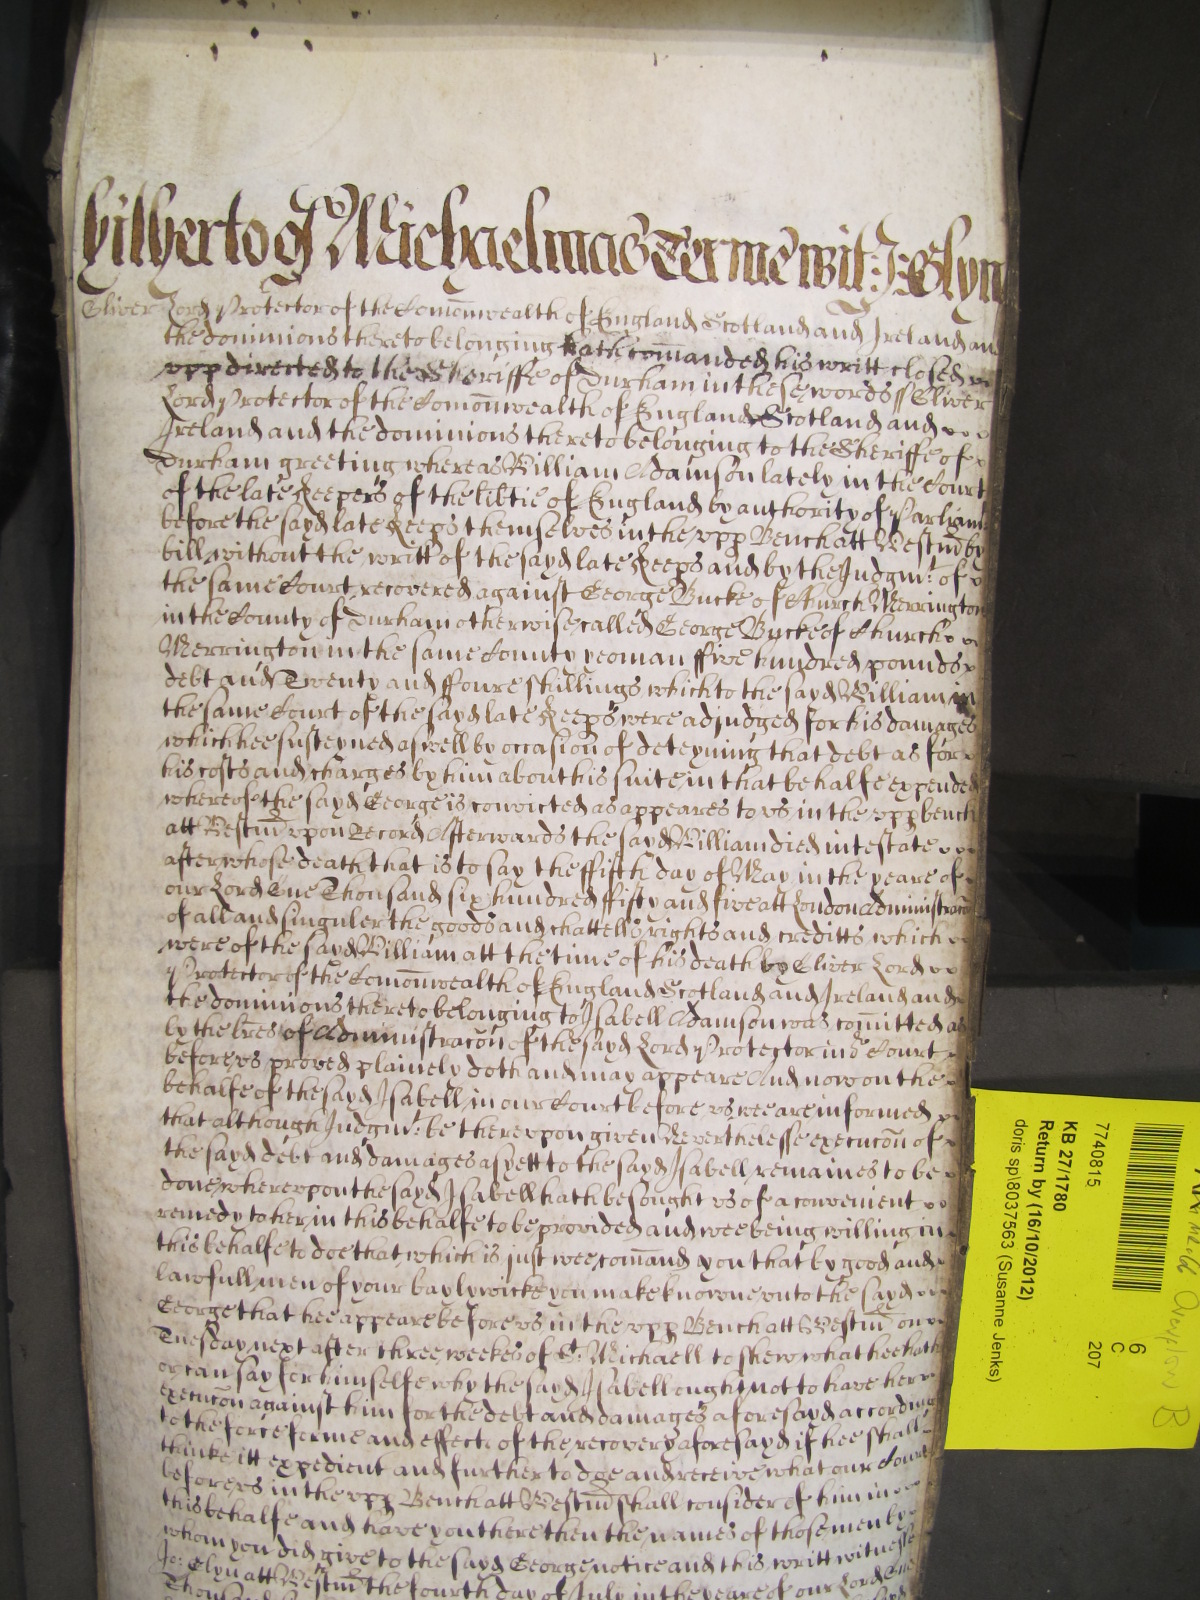 hitherto of Michaelmas Terme wit: J: Glyn
Oliver Lord Protector of the Comonwealth of England Scotland and Ireland and
the dominions thereto belonging hath comanded his writt closed
upp directed to the Sheriffe of Durham in these words ss Oliver
Lord Protector of the Comonwealth of England Scotland and
Ireland and the dominions thereto belonging to the Sheriffe of
Durham greeting whereas William Adamson lately in the Court
of the late Keepers of the libtie of England by authority of Parliamt
before the sayd late Keeps themselves in the upp Bench att Westm by
bill without the writt of the sayd late Keeps and by the Judgmt: of
the same Court recovered against George Bucke of Church Merrington
in the County of Durham otherwise called George Bucke of Church
Merrington in the same County yeoman ffive hundred pounds
debt and Twenty and ffoure shillings which to the sayd William in
the same Court of the sayd late Keeps were adjudged for his damages
which hee susteyned aswell by occasion of deteyning that debt as for
his costs and charges by him about his suite in that behalfe expended
whereof the sayd George is convicted as appeares to us in the upp bench
att Westm upon Record Afterwards the sayd William died intestate
after whose death that is to say the ffifth day of May in the yeare of
our Lord One Thousand six hundred ffifty and five att London Administracon
of all and singuler the goods and chattells rights and creditts which
were of the sayd William att the time of his death by Oliver Lord
Protector of the Comonwealth of England Scotland and Ireland and
the dominions thereto belonging to Isabell Adamson was comitted as
by the lres of Administracon of the sayd Lord Protector in ye Court
before us proved plainely doth and may appeare And now on the
behalfe of the sayd Isabell in our Court before us wee are informed
that although Judgmt: be thereupon given Neverthelesse execucon of
the sayd debt and damages as yett to the sayd Isabell remaines to be
done whereupon the sayd Isabell hath besought us of a convenient
remedy to her in this behalfe to be provided and wee being willing in
this behalfe to doe that which is just wee comand you that by good and
lawfull men of your baylywicke you make knowne unto the sayd
George that hee appeare before us in the upp Bench att Westm on
Tuesday next after three weekes of St. Michaell to shew what hee hath
or can say for himselfe why the sayd Isabell ought not to have her
execucon against him for the debt and damages aforesayd according
to the force forme and effect of the recovery aforesayd if hee shall
thinke itt expedient and further to doe and receive what our Court
before us in the upp Bench att Westm shall consider of him in
this behalfe and have you there then the names of those men by
whom you did give to the sayd George notice and this writt witnesse
Jo: Glyn att Westm the fourth day of July in the yeare of our Lord One
7740815
KB 27/1780
Return by (16/10/2012)
doris sp\8037563 (Susanne Jenks)
6
C
207
B